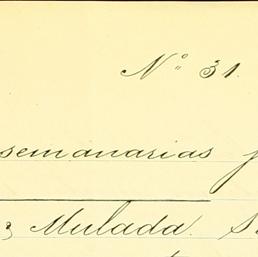 Nº 31.
semanarias
Mulada. S